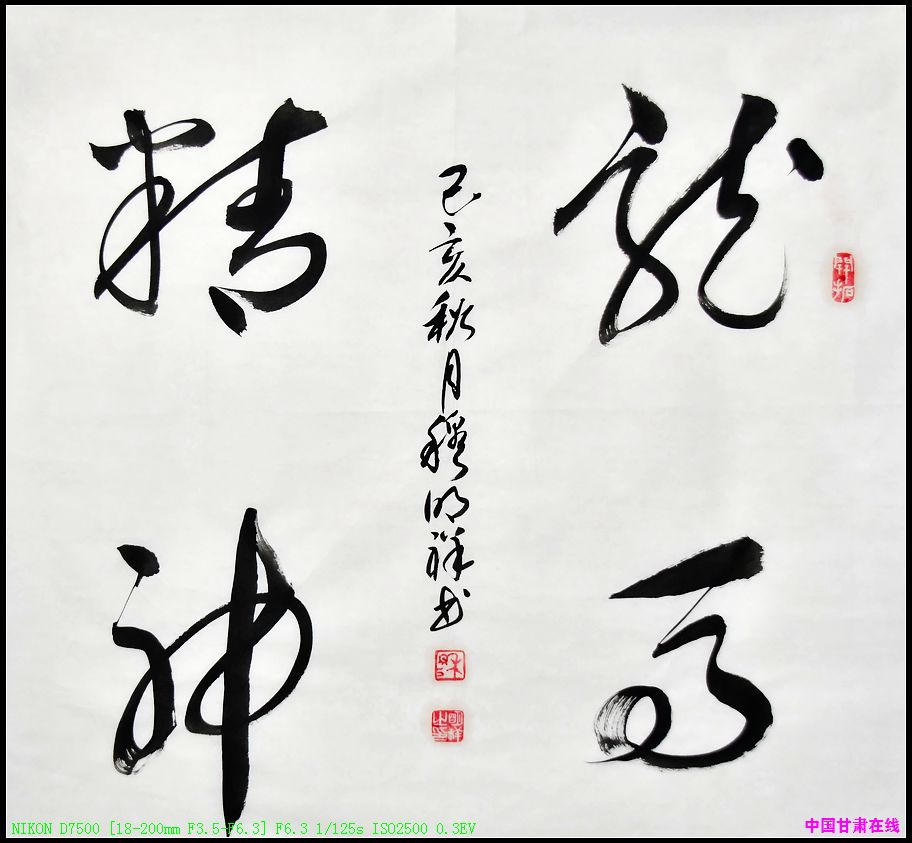 龍馬
精神
己亥秋月穆明祥书
開拓
明祥之印
NIKON D7500 [18-200mm F3.5-F6.3] F6.3 1/125s ISO2500 0.3EV
中国甘肃在线